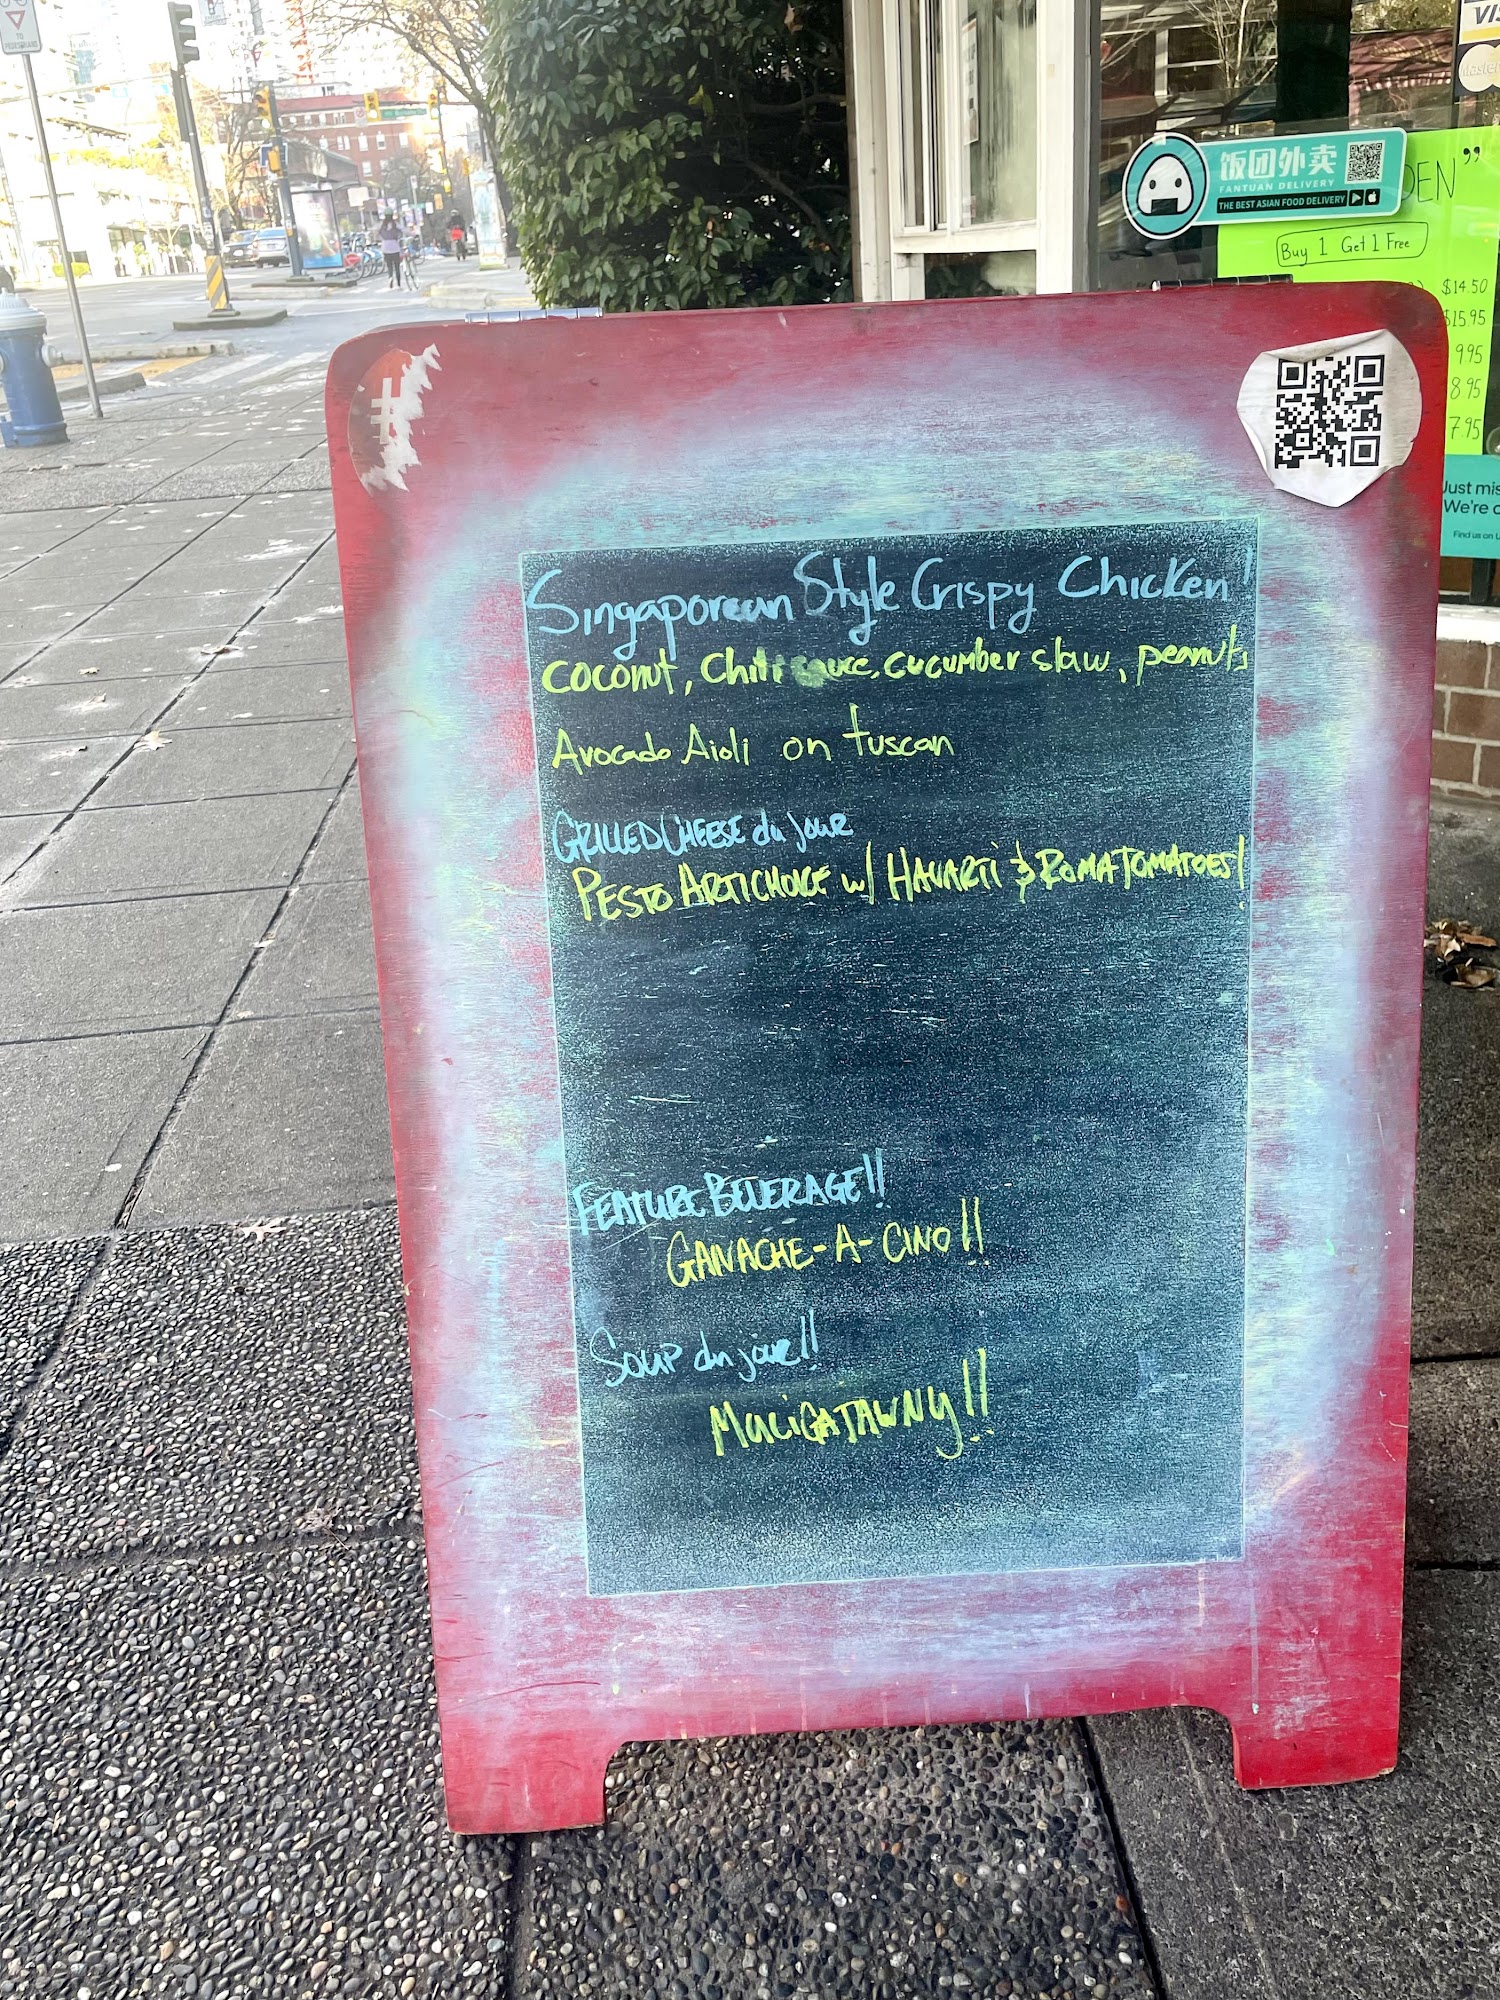 TO
PEDESTRIANS
饭团外卖
FANTUAN DELIVERY
THE BEST ASIAN FOOD DELIVERY
VIS
Master
DEN"
Buy 1 Get 1 Free
$14.50
$15.95
9.95
8.95
7.95
Just mis
We're o
Find us on
#
Singaporean Style Crispy Chicken!
coconut, Chili sauce, cucumber slaw, peanuts
Avocado Aioli on tuscan
GRILLED CHEESE du jour
PESTO ARTICHOKE w/ HAVARTI & ROMA TOMATOES!
FEATURE BEVERAGE!!
GANACHE-A-CINO!!
SOUP du jour!!
MULIGATAWNY!!